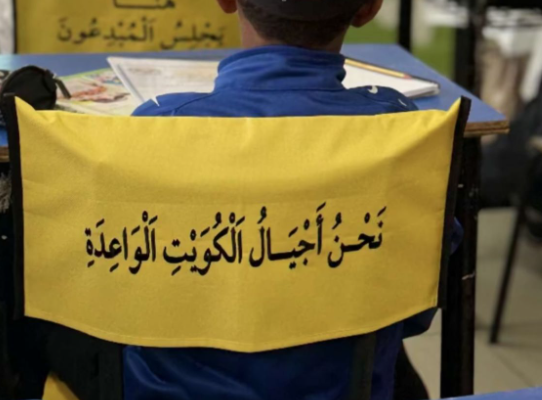 هنا
يَجْلِسُ اَلْمُبْدِعُونَ
نَحْنُ أَجْيَالُ اَلْكُوَيْتِ اَلْوَاعِدَةِ